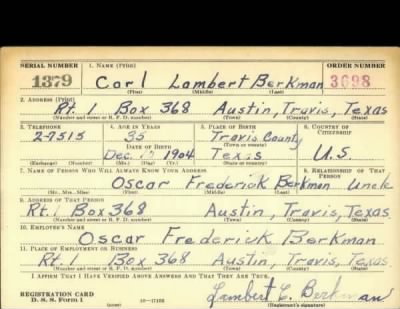 SERIAL NUMBER 1. NAME (Print) ORDER NUMBER
1379 Carl Lambert Berkman 3698
(First) (Middle) (Last)
2. ADDRESS (Print)
Rt. 1 Box 368 Austin, Travis, Texas
(Number and street or R. F. D. number) (Town) (County) (State)
3. TELEPHONE 4. AGE IN YEARS 5. PLACE OF BIRTH 6. COUNTRY OF CITIZENSHIP
2-7515 35 Travis County
DATE OF BIRTH (Town or county)
Dec. 1904 Texas U.S.
(Exchange) (Number) (Mo.) (Day) (Yr.) (State or country)
7. NAME OF PERSON WHO WILL ALWAYS KNOW YOUR ADDRESS 8. RELATIONSHIP OF THAT PERSON
Oscar Frederick Berkman Uncle
(Mr., Mrs., Miss) (First) (Middle) (Last)
9. ADDRESS OF THAT PERSON
Rt. 1 Box 368 Austin, Travis, Texas
(Number and street or R. F. D. number) (Town) (County) (State)
10. EMPLOYER'S NAME
Oscar Frederick Berkman
11. PLACE OF EMPLOYMENT OR BUSINESS
Rt. 1 Box 368 Austin, Travis, Texas
(Number and street or R. F. D. number) (Town) (County) (State)
I AFFIRM THAT I HAVE VERIFIED ABOVE ANSWERS AND THAT THEY ARE TRUE.
REGISTRATION CARD Lambert C. Berkman
D. S. S. Form 1 (over) (Registrant's signature)